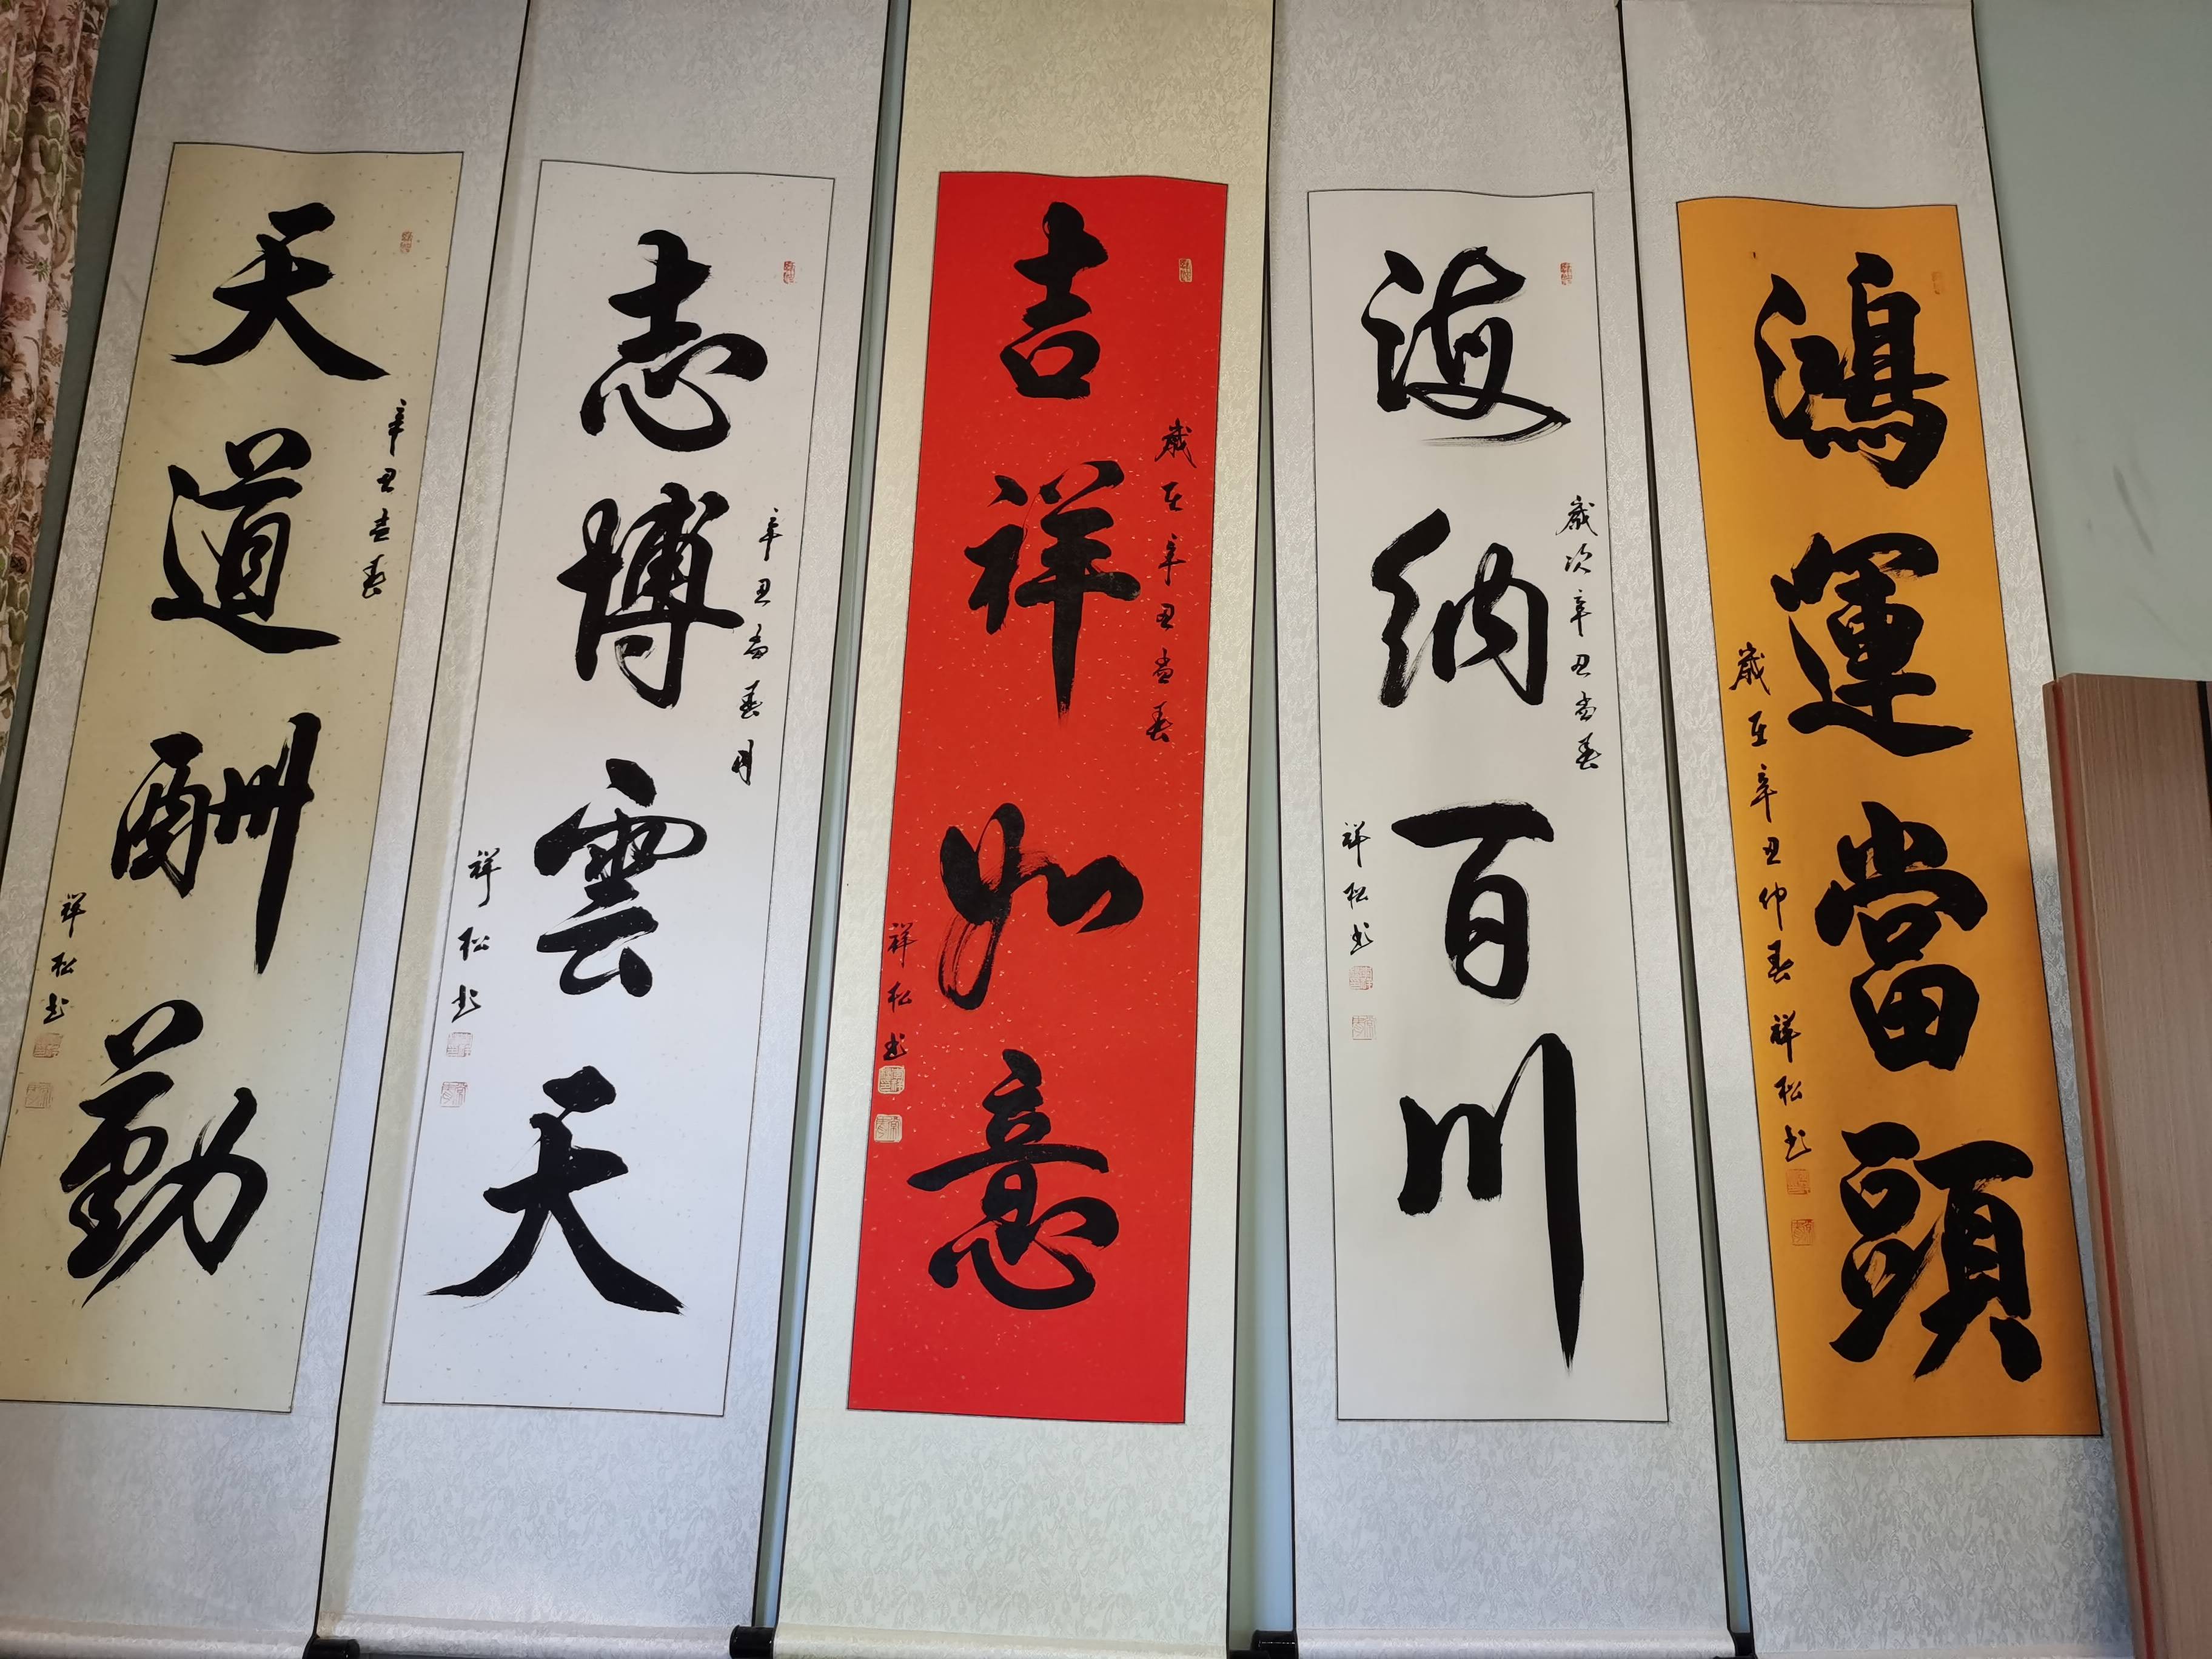 天道酬勤
辛丑孟春
祥松书
志博雲天
辛丑孟春月
祥松书
吉祥如意
歲在辛丑孟春
祥松书
海納百川
歲次辛丑孟春
祥松书
鴻運當頭
歲在辛丑仲春 祥松书